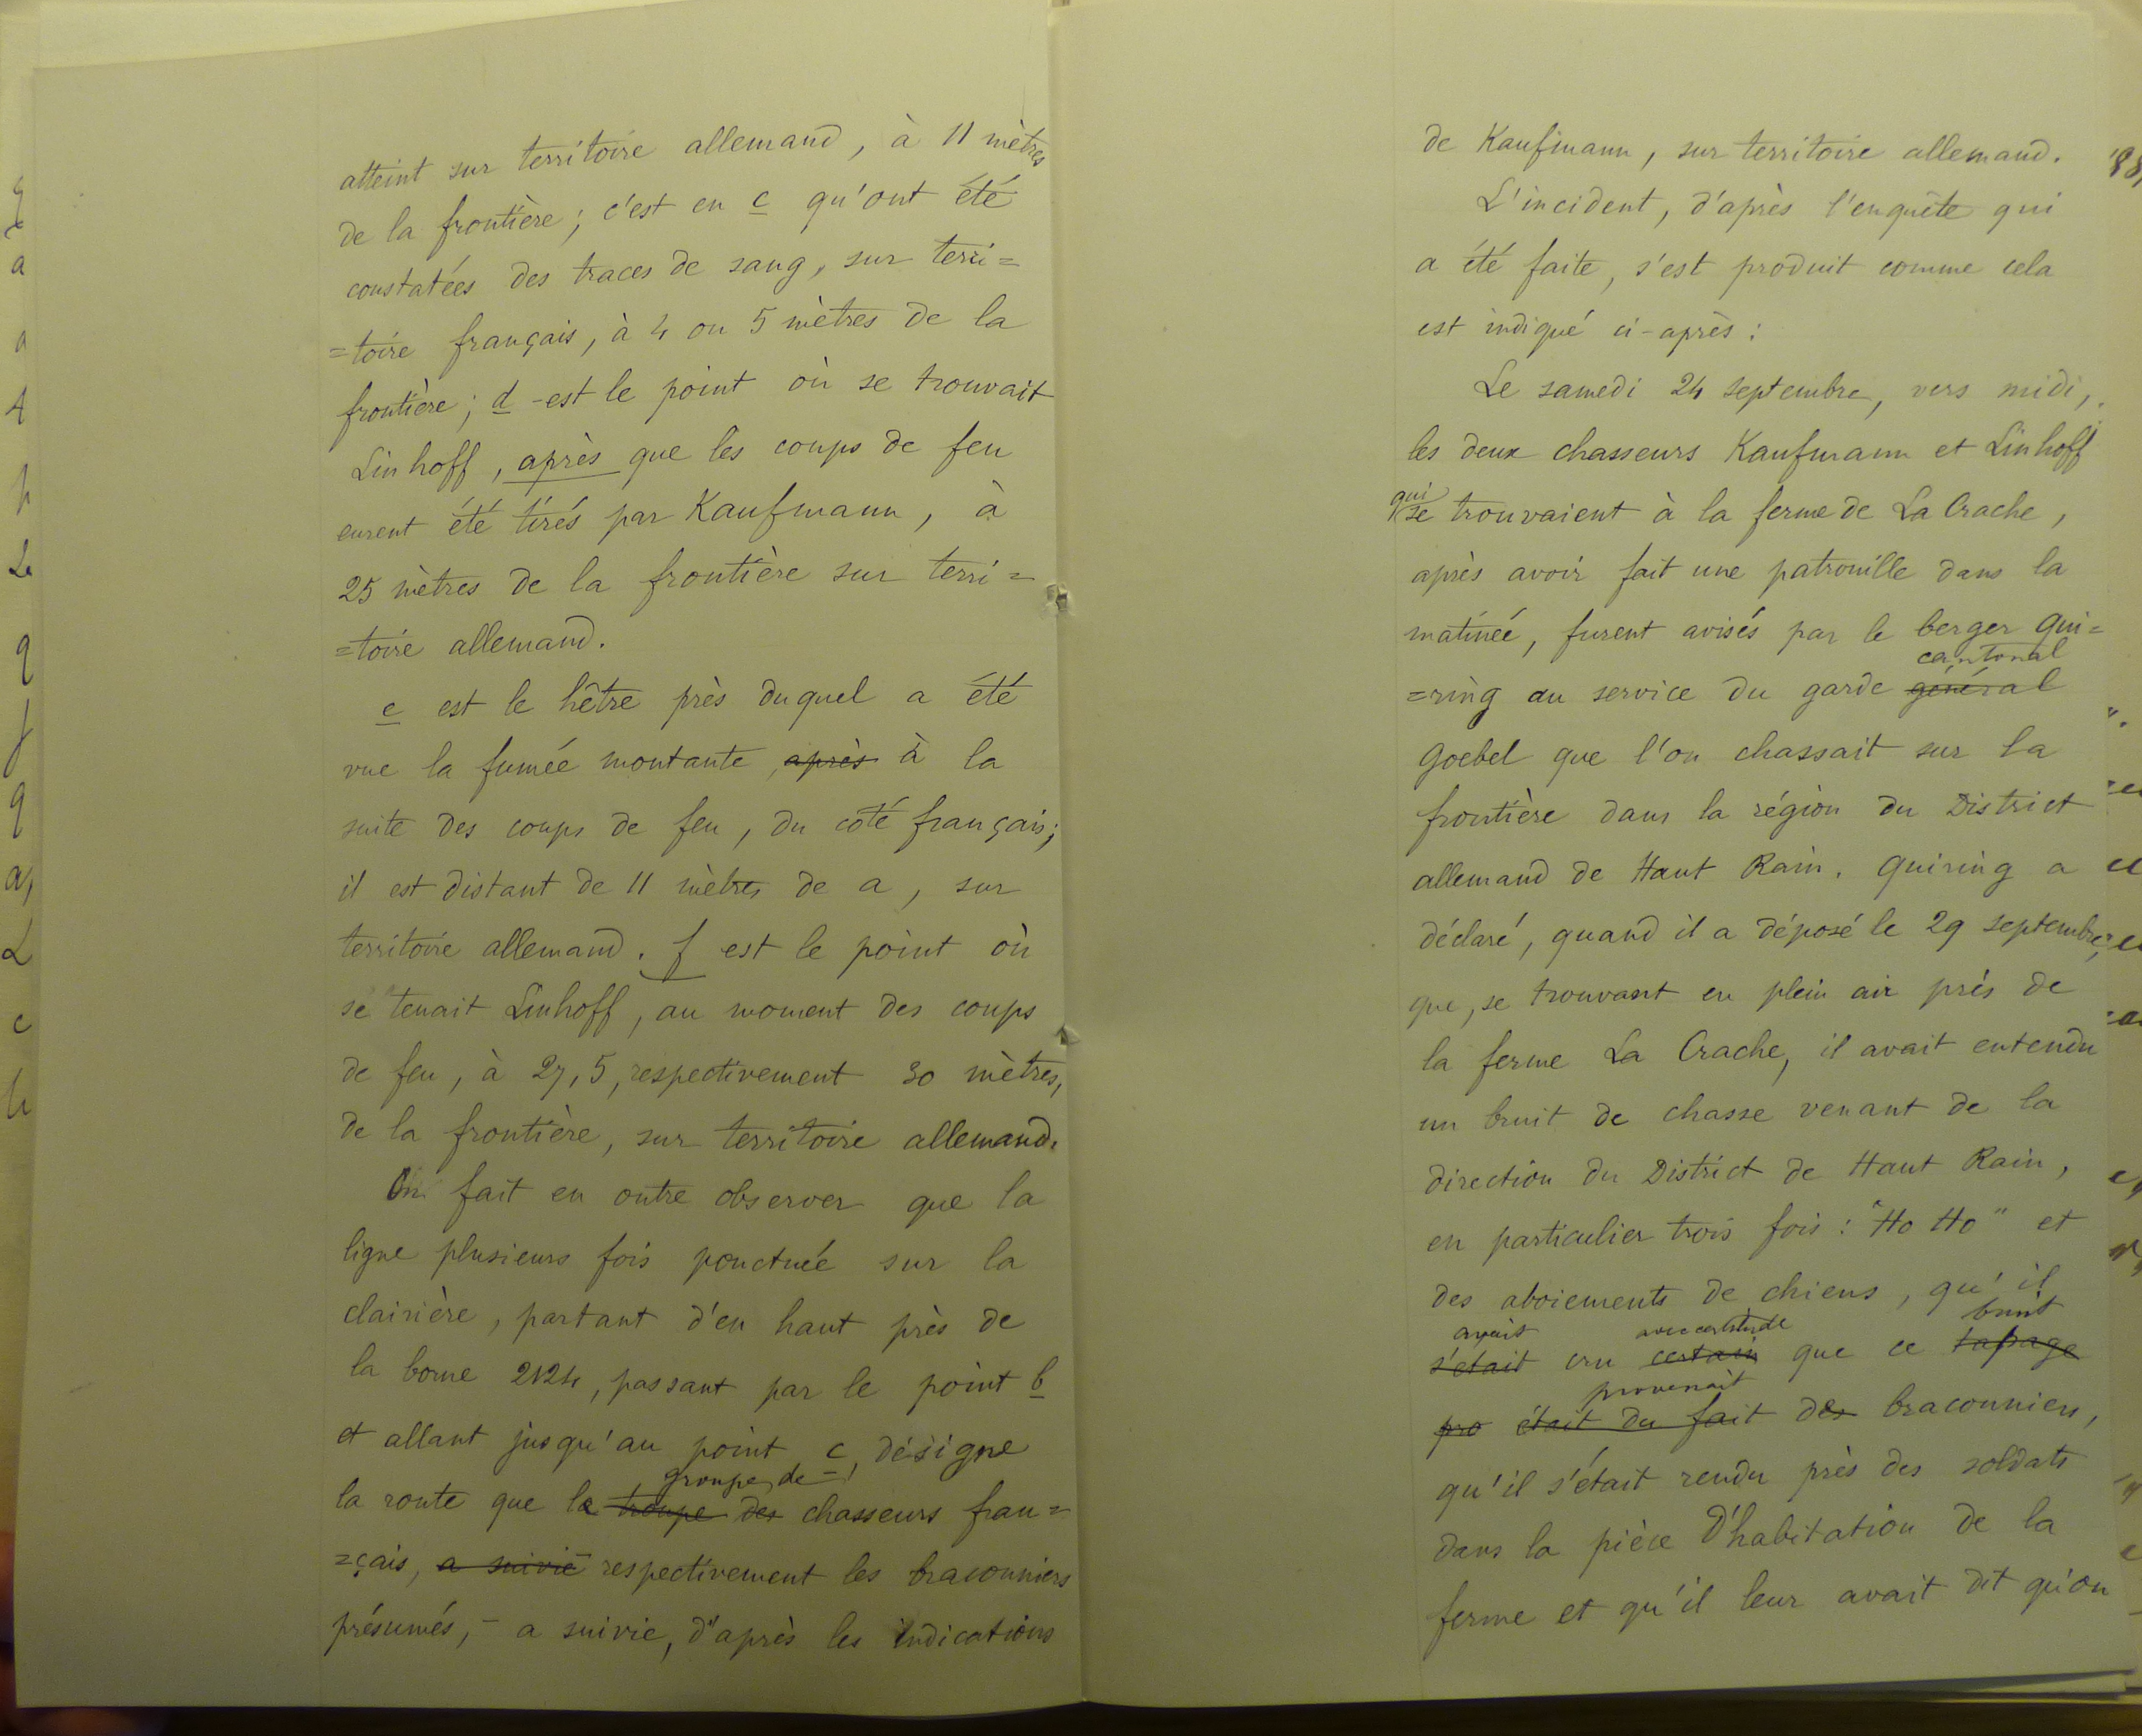 atteint sur territoire allemand, à 11 mètres
de la frontière; c'est en c qu'ont été
constatées des traces de sang, sur terri=
=toire français, à 4 ou 5 mètres de la
frontière; d - est le point où se trouvait
Linhoff, après que les coups de feu
eurent été tirés par Kaufmann, à
25 mètres de la frontière sur terri=
=toire allemand.
e est le hêtre près duquel a été
vue la fumée montante, après à la
suite des coups de feu, du côté français;
il est distant de 11 mètres de a, sur
territoire allemand. f est le point où
se tenait Linhoff, au moment des coups
de feu, à 27,5, respectivement 30 mètres,
de la frontière, sur territoire allemand.
On fait en outre observer que la
ligne plusieurs fois ponctuée sur la
clairière, partant d'en haut près de
la borne 2124, passant par le point b
et allant jusqu'au point c, désigne
groupe de
la route que le troupe des chasseurs fran=
=çais, a suivie respectivement les braconniers
présumés, - a suivie, d'après les indications
de Kaufmann, sur territoire allemand.
L'incident, d'après l'enquête qui
a été faite, s'est produit comme cela
est indiqué ci-après :
Le samedi 24 septembre, vers midi,
les deux chasseurs Kaufmann et Linhoff
qui
se trouvaient à la ferme de La Crache,
après avoir fait une patrouille dans la
matinée, furent avisés par le berger Qui=
cantonal
=ring au service du garde général
Goebel que l'on chassait sur la
frontière dans la région du District
allemand de Haut Rain. Quiring a
déclaré, quand il a déposé le 29 septembre,
que, se trouvant en plein air près de
la ferme La Crache, il avait entendu
un bruit de chasse venant de la
direction du District de Haut Rain,
en particulier trois fois : "Ho Ho" et
des aboiements de chiens, qu'il
avait avec certitude bruit
s'était cru certain que ce tapage
provenait
pro était du fait des braconniers,
qu'il s'était rendu près des soldats
dans la pièce d'habitation de la
ferme et qu'il leur avait dit qu'on